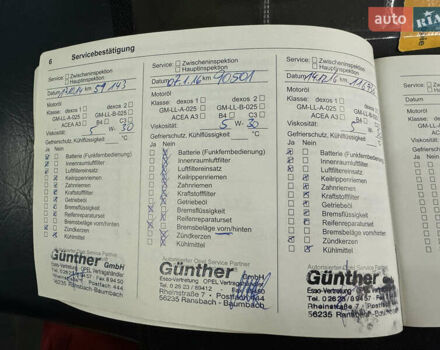 6 Servicebestätigung
Service: Zwischeninspektion
Hauptinspektion
Datum km 59 143
Motoröl
Klasse: dexos 1 dexos 2
GM-LL-A-025 GM-LL-B-025
ACEA A3 B4 C3
Viskosität: 5 W- 30
Gefrierschutz, Kühlflüssigkeit °C
Ja Nein
Batterie (Funkfernbedienung)
Innenraumluftfilter
Luftfiltereinsatz
Keilrippenriemen
Zahnriemen
Kraftstofffilter
Getriebeöl
Bremsflüssigkeit
Reifenreparaturset
Bremsbeläge vorn/hinten
Zündkerzen
Kühlmittel
Autorisierter Opel Service Partner
Günther GmbH
Esso-Vertretung OPEL Vertragshändler
Tel. 0 26 23 / 8 94 12 - Fax 8 94 50
Rheinstraße 7 • Postfach 444
56235 Ransbach - Baumbach
Service: Zwischeninspektion
Hauptinspektion
Datum 07.1.16 km 90501
Motoröl
Klasse: dexos 1 dexos 2
GM-LL-A-025 GM-LL-B-025
ACEA A3 B4 C3
Viskosität: 5 W- 30
Gefrierschutz, Kühlflüssigkeit °C
Ja Nein
Batterie (Funkfernbedienung)
Innenraumluftfilter
Luftfiltereinsatz
Keilrippenriemen
Zahnriemen
Kraftstofffilter
Getriebeöl
Bremsflüssigkeit
Reifenreparaturset
Bremsbeläge vorn/hinten
Zündkerzen
Kühlmittel
Autorisierter Opel Service Partner
Günther GmbH
Esso-Vertretung OPEL Vertragshändler
Rheinstraße 7 • Postfach 444
56235 Ransbach - Baumbach
Service: Zwischeninspektion
Hauptinspektion
Datum 14.12.16 km
Motoröl
Klasse: dexos 1 dexos 2
GM-LL-A-025 GM-LL-B-025
ACEA A3 B4 C3
Viskosität: 5 W- 30
Gefrierschutz, Kühlflüssigkeit °C
Ja Nein
Batterie (Funkfernbedienung)
Innenraumluftfilter
Luftfiltereinsatz
Keilrippenriemen
Zahnriemen
Kraftstofffilter
Getriebeöl
Bremsflüssigkeit
Reifenreparaturset
Bremsbeläge vorn/hinten
Zündkerzen
Kühlmittel
Autorisierter Opel Service Partner
Günther
Esso-Vertretung OPEL
Rheinstraße 7
56235 Ransbach
AUTO
RIA